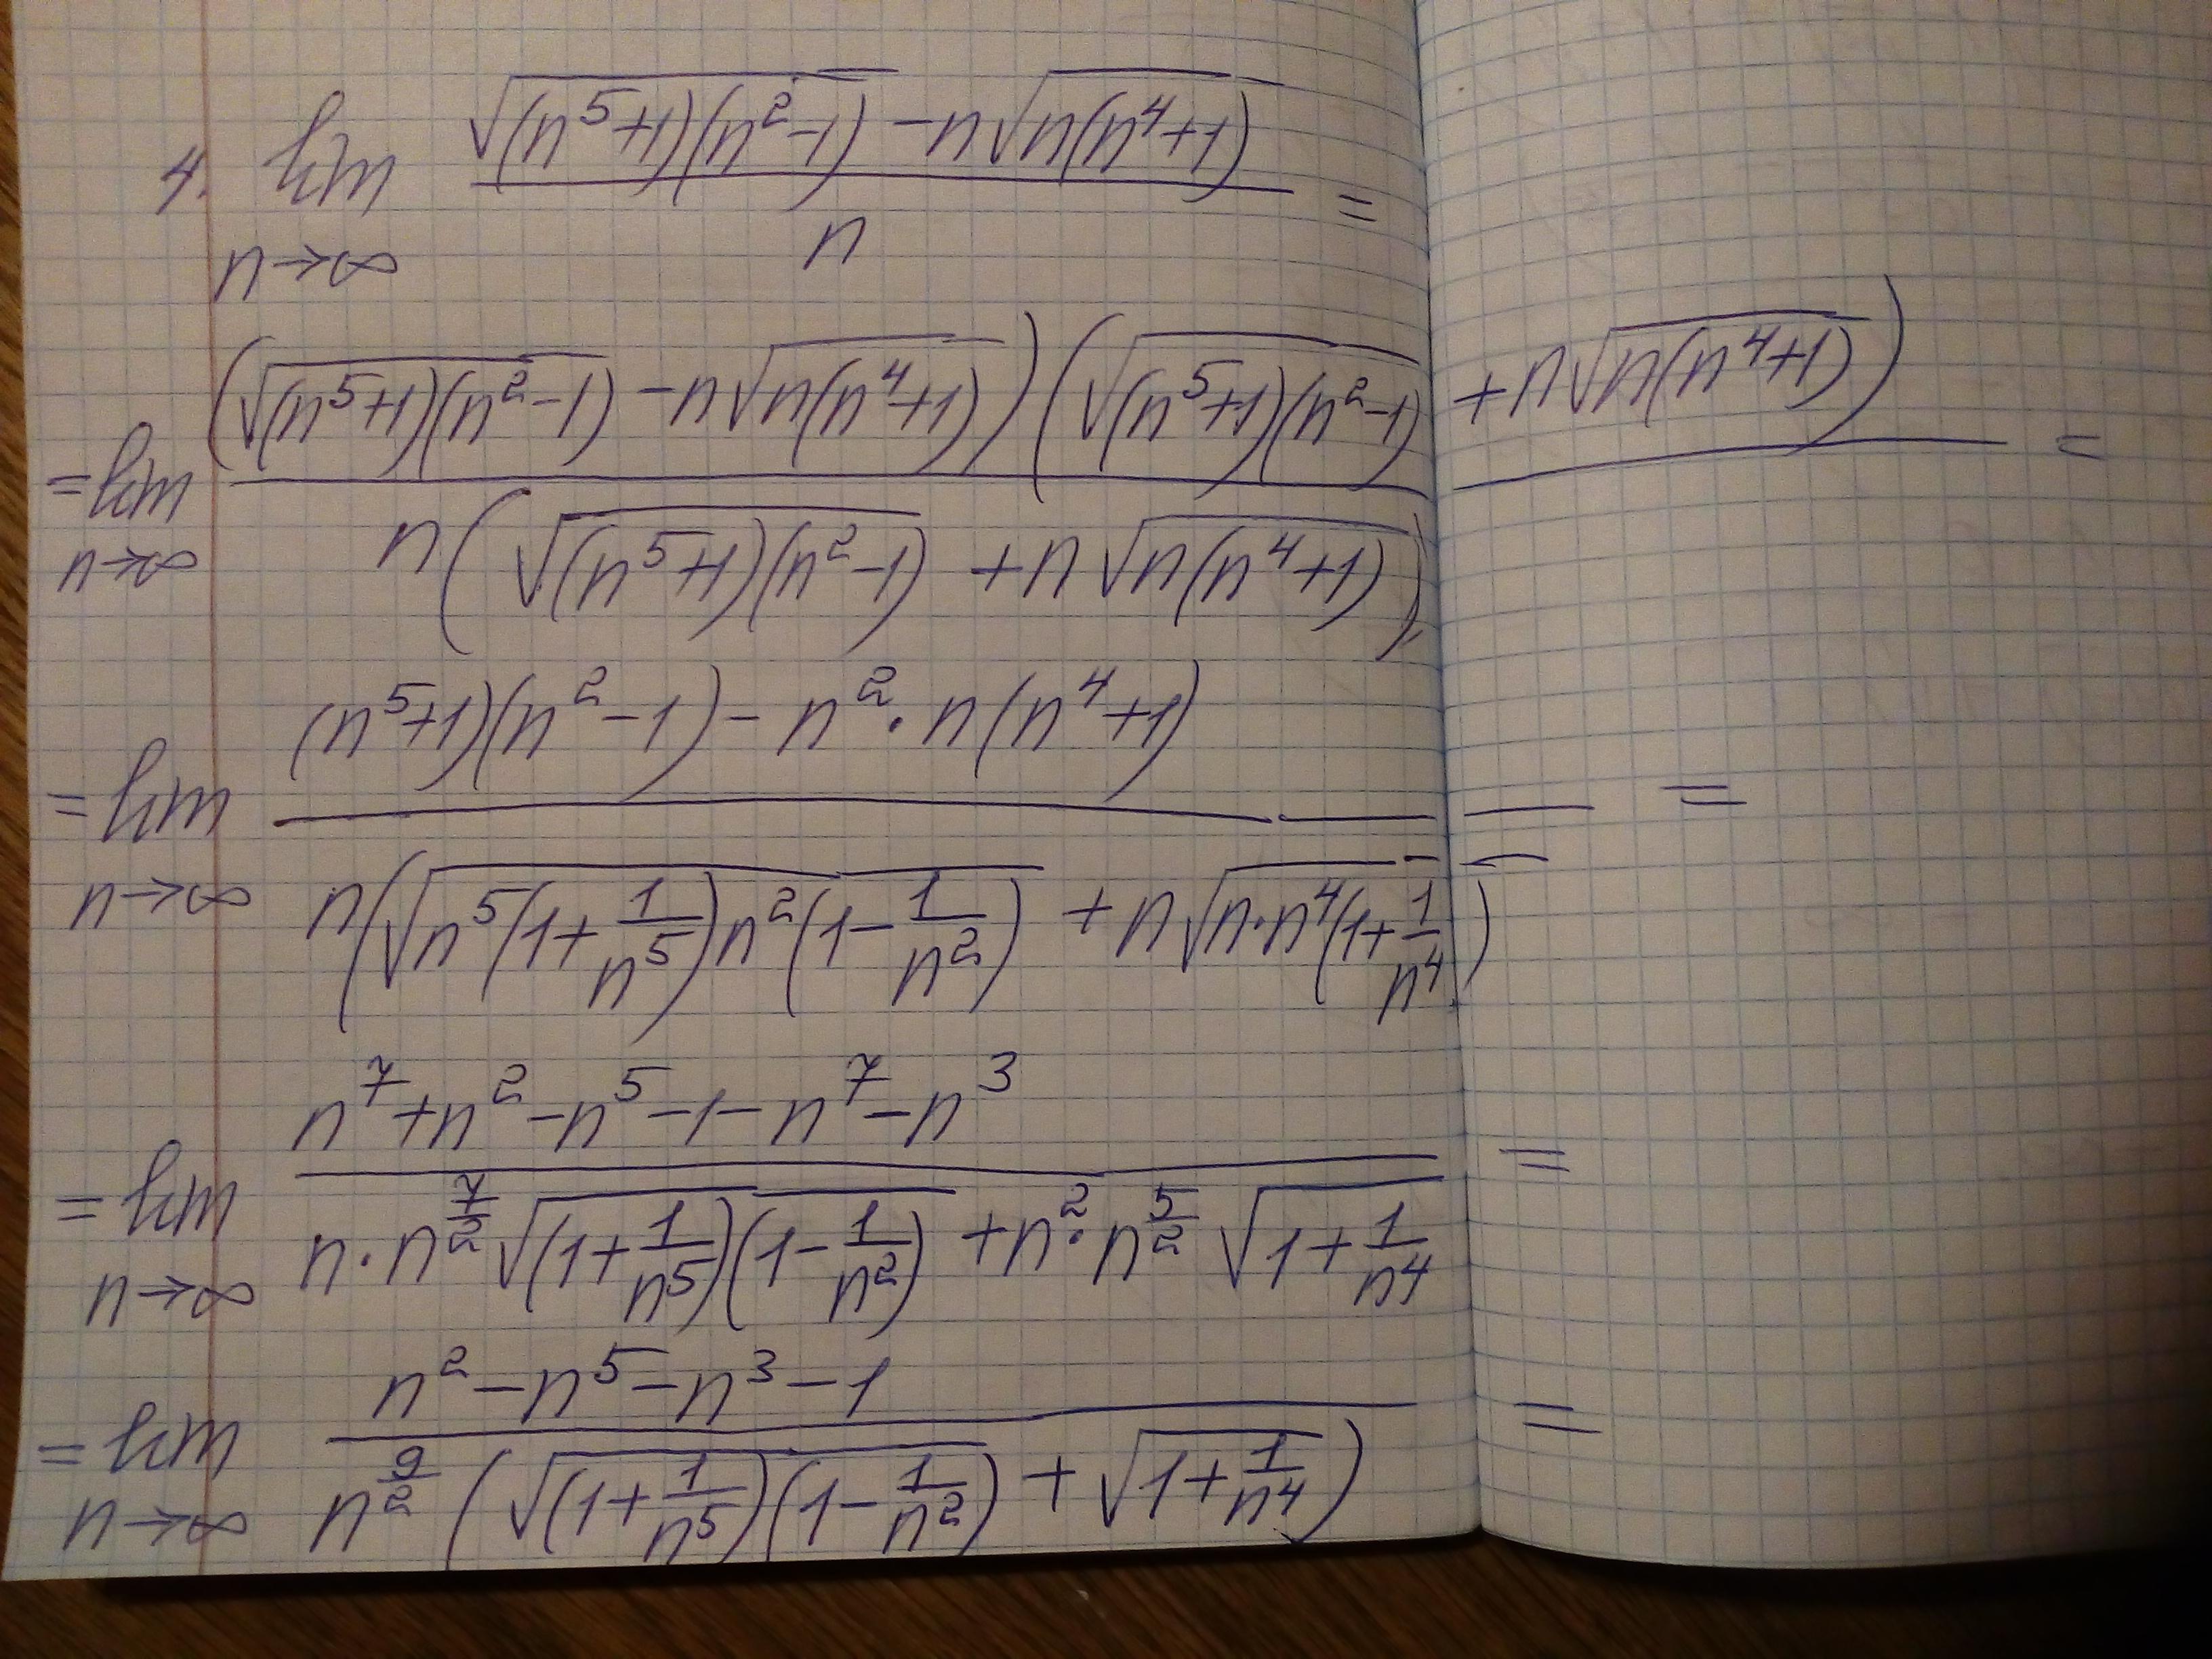 4. lim n→∞ (√((n⁵+1)(n²-1)) - n√(n(n⁴+1))) / n =
= lim n→∞ ((√((n⁵+1)(n²-1)) - n√(n(n⁴+1)))(√((n⁵+1)(n²-1)) + n√(n(n⁴+1)))) / (n(√((n⁵+1)(n²-1)) + n√(n(n⁴+1)))) =
= lim n→∞ ((n⁵+1)(n²-1) - n²·n(n⁴+1)) / (n(√(n⁵(1+1/n⁵)n²(1-1/n²)) + n√(n·n⁴(1+1/n⁴)))) =
= lim n→∞ (n⁷+n²-n⁵-1-n⁷-n³) / (n·n^(7/2)√((1+1/n⁵)(1-1/n²)) + n²·n^(5/2)√(1+1/n⁴)) =
= lim n→∞ (n²-n⁵-n³-1) / (n^(9/2)(√((1+1/n⁵)(1-1/n²)) + √(1+1/n⁴))) =